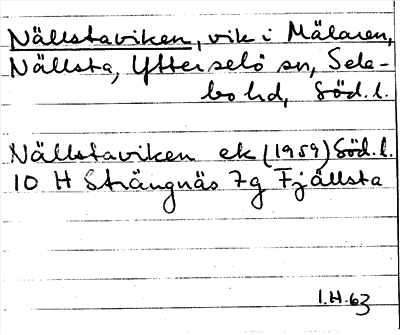 Nällstaviken, vik i Mälaren,
Nällsta, Ytterselö sn, Sele-
bo hd, Söd. l.
Nällstaviken ek (1959) Söd. l.
10 H Strängnäs 7g Fjällsta
I.H. 63